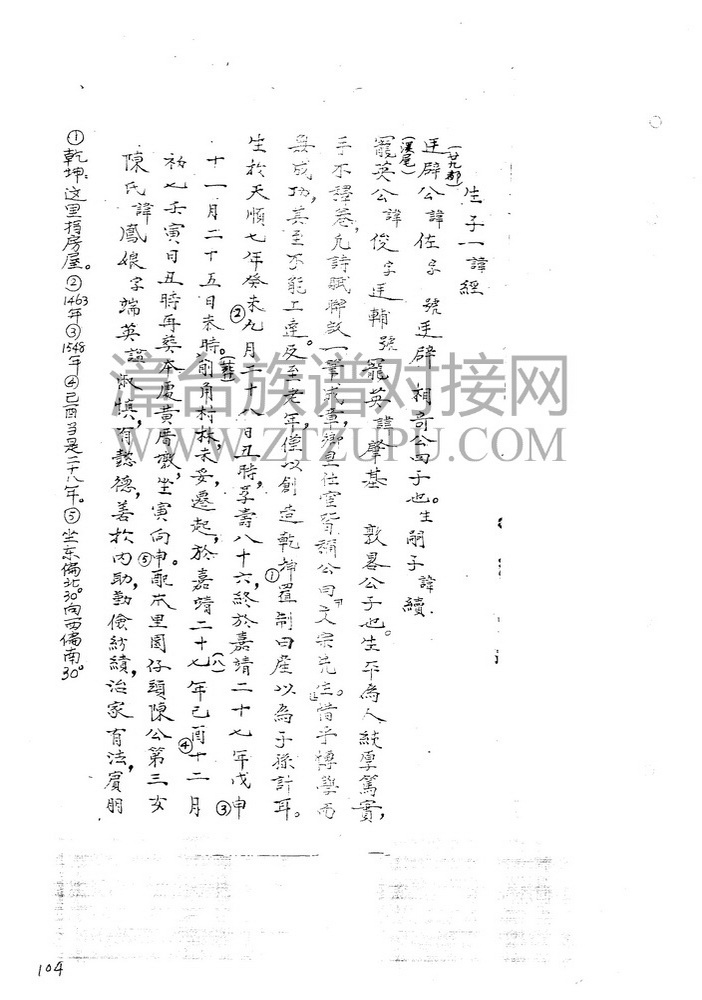 生子一諱經
(廿九都)
廷辟公諱佐字 號廷辟 公四子也。生嗣子諱續
(溪尾)
寵英公諱俊字廷輔號寵英諱肇基 敦畧公子也。生平為人純厚篤實,
手不釋卷,凡詩賦聯設一筆成章,鄉里社 皆稱公曰文宗先生。惜乎博學而
成功,甚至不能工達。反至老年,僅以創造乾坤①置制田産以為子孫計耳。
生於天順七年癸未②九月二十八日丑時,享壽八十六,終於嘉靖二十七年戊申③
十一月二十五日未時。(葬)前角村林,未妥,遷起,於嘉靖二十七(八)年己酉④十二月
初七壬寅日丑時再葬本處黄厝墩,坐寅向申⑤。配 里園仔頭陳公第三女
陳氏諱鳳娘字端英諡淑慎,有懿德,善於内助,勤儉紡績,治家有法,賓朋
①乾坤:这里指房屋。②1463年③1548年④己酉当是二十八年。⑤坐东偏北30°向西偏南30°
漳台族谱对接网
WWW.ZTZUPU.COM
104